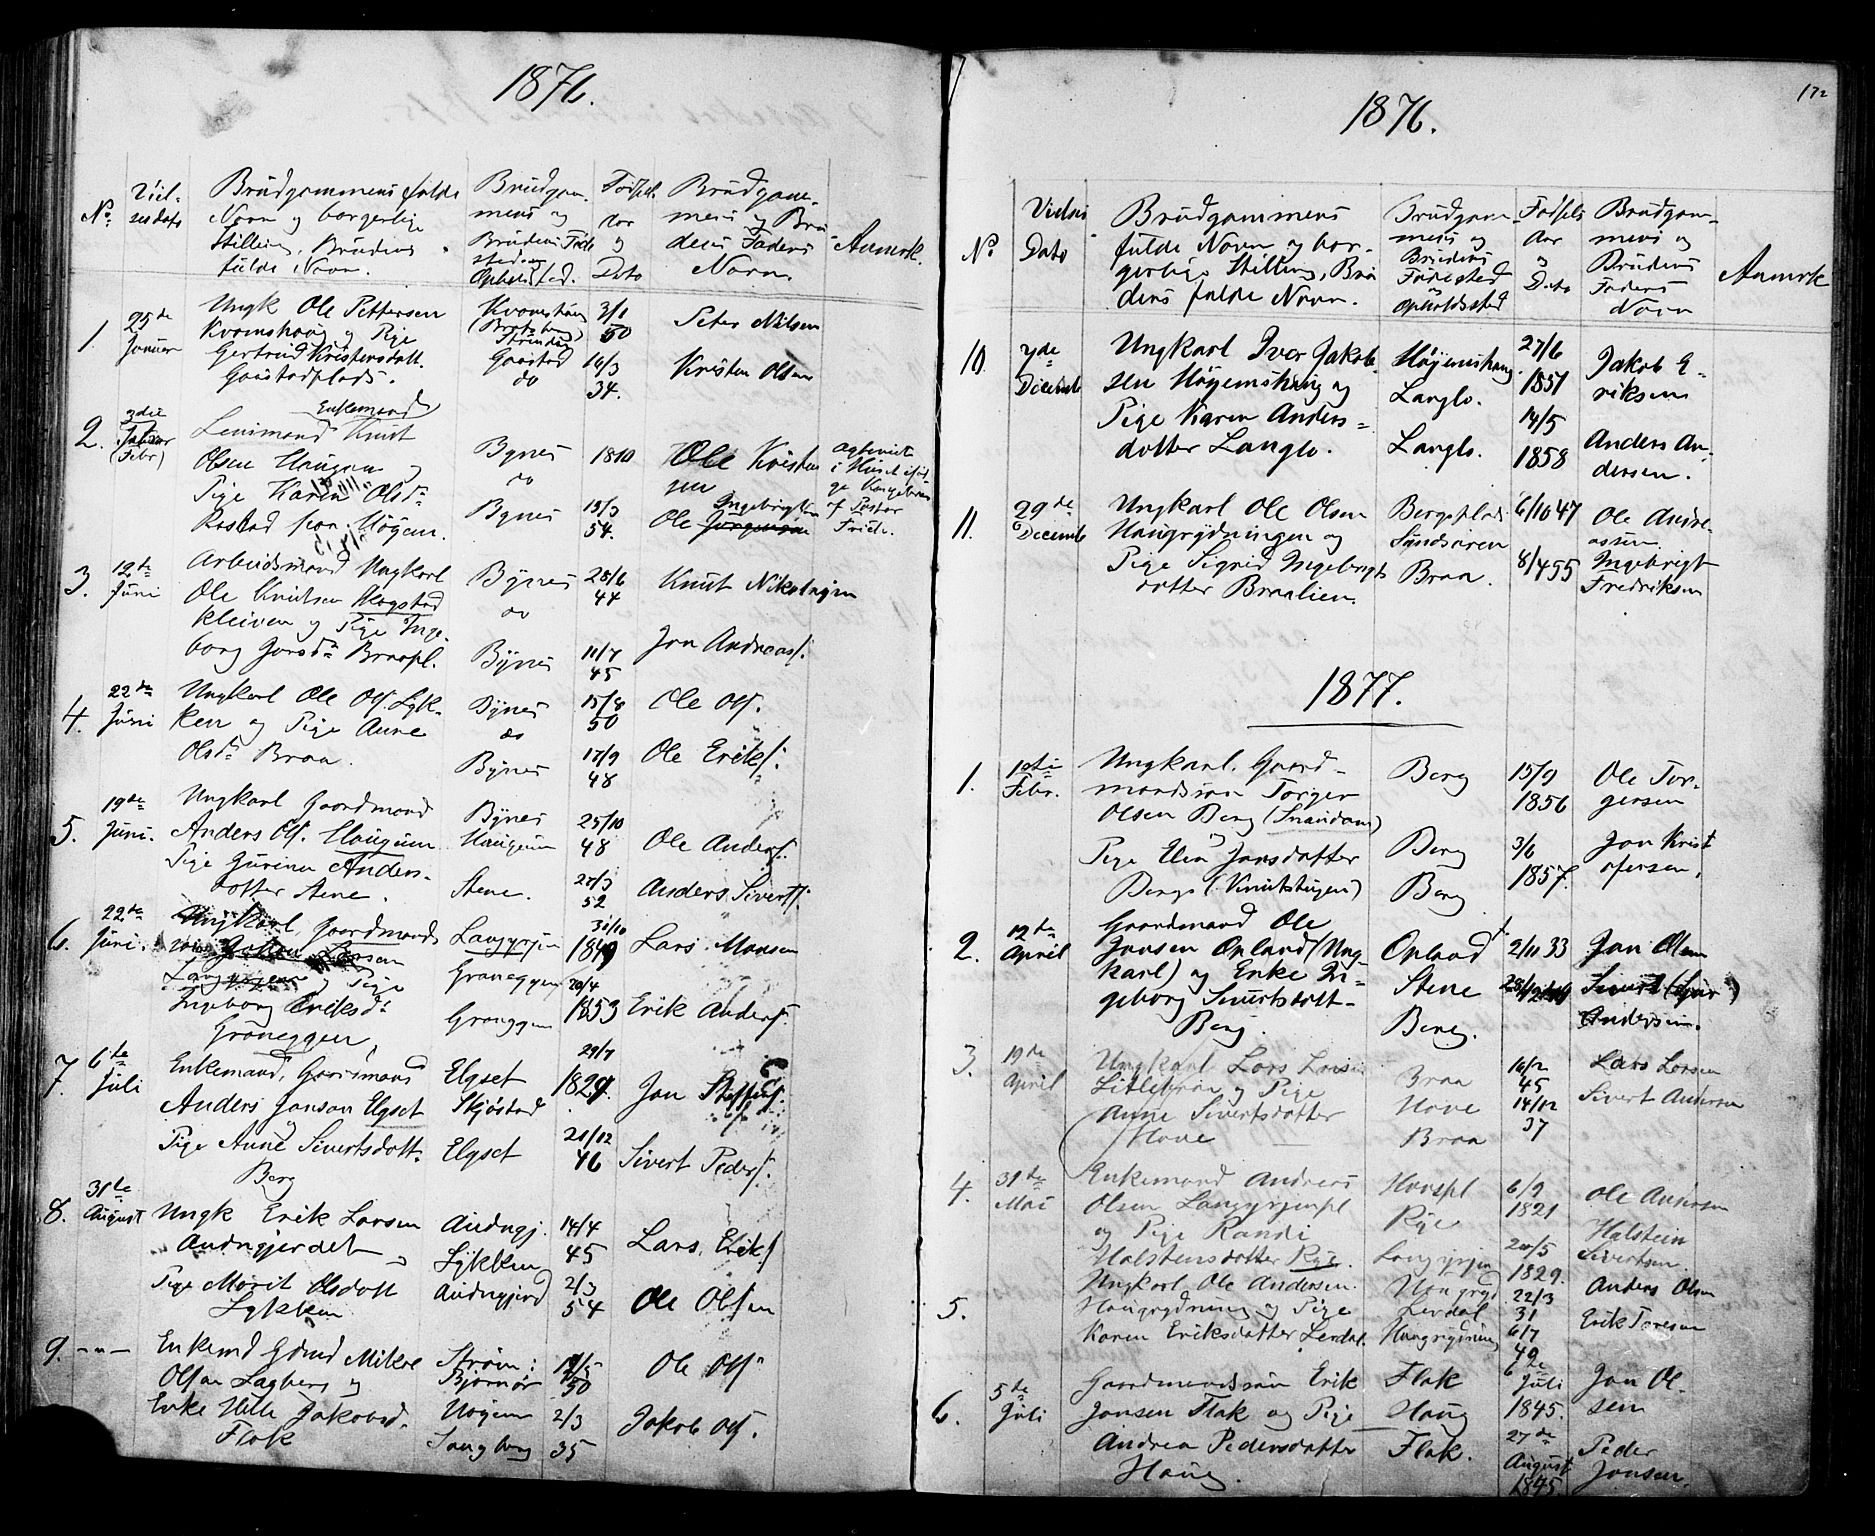 1876.
No.
Viel-
sesdato
Brudgommens fulde
Navn og borgerlig
Stilling, Brudens
fulde Navn.
Brudgom-
mens og
Brudens Føde
sted og
Opholdsted.
Fødsels
Aar
og
Dato
Brudgom-
mens og Bru-
dens Faders
Navn
Anmrk.
1.
25de
Januar
Ungk Ole Pettersen
Kvamshaug og Pige
Gertrud Kristensdatt.
Gaustadplads.
Strinden
Gaustad
do
3/1
50
16/3
34.
Peter Nilsen
Kristen Olsen
2.
3die
(Febr)
Enkemand
Knut
Olsen Haugan og
Pige Karen Olsd.
fra Høgem.
Bynes
do
Bynes
1810
13/3
54.
Ole Kristen
sen
Ole Ingebrigtsen
i Huset
af Pastor
3.
12te
Juni
Arbeidsmand Ungkarl
Ole Knutsen Hogstad
kleiven og Pige Inge-
borg Jonsd. Braapl.
Bynes
do
Bynes
28/6
44
11/7
45
Knut Nikolaisen
Jon Andreass.
4.
22de
Juni
Ungkarl Ole Ols. Lyk-
ken og Pige Anne
Olsd. Braa.
Bynes
do
Bynes
15/8
50
17/9
48
Ole Ols.
Ole Eriks.
5.
19de
Juni.
Ungkarl Gaardmand
Anders Ols. Haugum
Pige Gurina Anders-
datter Stene.
Bynes
Haugum
Stene.
25/10
48
27/3
52
Ole Anders.
Anders Siverts.
6.
22de
Juni.
Ungkarl, Gaardmands
og Pige
Ingeborg Eriksd.
Graneggen,
Langørjen
Graneggen
Graneggen
31/10
1849
20/4
1853
Lars Monsen
Erik Anders.
7.
6te
Juli
Enkemand, Gaardmand
Anders Jonsen Elgset
og
Pige Anne Sivertsdatt.
Berg
Elgset
Skjøstad
Elgset
29/7
1829.
21/12
46
Jon Steffens.
Sivert Peders.
8.
31te
August
Ungk Erik Larsen
Audngjerdet og
Pige Marit Olsdatt
Lykken
Audngj.
Lykken
Audngjerd
14/4
45
2/3
54
Lars Eriks.
Ole Olsen
9. -"-
Enkemd Gdmd Mikal
Olsen Lagberg og
Enke Jakobsd.
Flak
Strøm:
Bjørnør
Høgem
50
2/3
35
Ole Ols.
Jakob Ols.
172
1876.
No
Vielses
Dato
Brudgommens
fulde Navn og bor-
gerlige Stilling, Bru
dens fulde Navn.
Brudgom-
mens og
Brudens
Fødested
og
Opholdssted
Fødsels
Aar
og
Dato
Brudgom-
mens og
Brudens
Faders
Navn
Anmrk
10
7de
Decemb
Ungkarl Iver Jakob-
sen Høgemshaug og
Pige Karen Anders-
datter Langlo.
Høgemshaug.
Langlo.
Langlo.
27/6
1851
14/5
1858
Jakob E-
riksen
Anders An-
dersen.
11.
29de
Decemb
Ungkarl Ole Olsen
Haugrydningen og
Pige Sigrid Ingebrigts
datter Braalien.
Bergsplads
Sundsaren
Braa.
6/10 47
8/4 55
Ole Andre-
assen
Ingebrigt
Fredriksen
1877.
1.
1ste
Febr.
Ungkarl, Gaard-
mandssøn Torger
Olsen Berg (Snausan)
og
Pige Elen Jonsdatter
Bergs (Knutshagen)
Berg
Berg
Berg
15/9
1856
3/6
1857.
Ole Tor-
gersen
Jon Krist
ofersen,
2.
12te
April
Gaardmand Ole
Jonsen Opland (Ung-
karl) og Enke In-
geborg Sivertsdatt-
Berg.
Opland
Stene
Berg.
2/11 33
Jon Olsen
Andersen.
3.
19de
April
Ungkarl Lars Larsen
Litlebraa og Pige
Anne Sivertsdatter
Hove
Braa
Hove
Braa
16/2
45
14/12
37
Lars Larsen
Sivert Andersen
4.
31te
Mai
Enkemand Andreas
Olsen Langørjenpl
og Pige Randi
Halstensdatter Rye.
Hovspl
Rye
Langørjen
6/9
1821
20/5
1829.
Ole Andersen
Halstein
Sivertsen.
5.
Ungkarl Ole Andersen
Haugrydning og Pige
Karen Eriksdatter Lerdal.
Haugryd
Lerdal
Haugrydning
22/3
31
6/7
49
Anders Olsen
Erik Toresen
6.
5te
Juli
Gaardmandssøn Erik
Jonsen Flak og Pige
Andrea Pedersdatter
Haug.
Flak
Haug
Flak.
Juli
1845.
27de
August
1845.
Jon Ol-
sen
Peder
Jonsen.